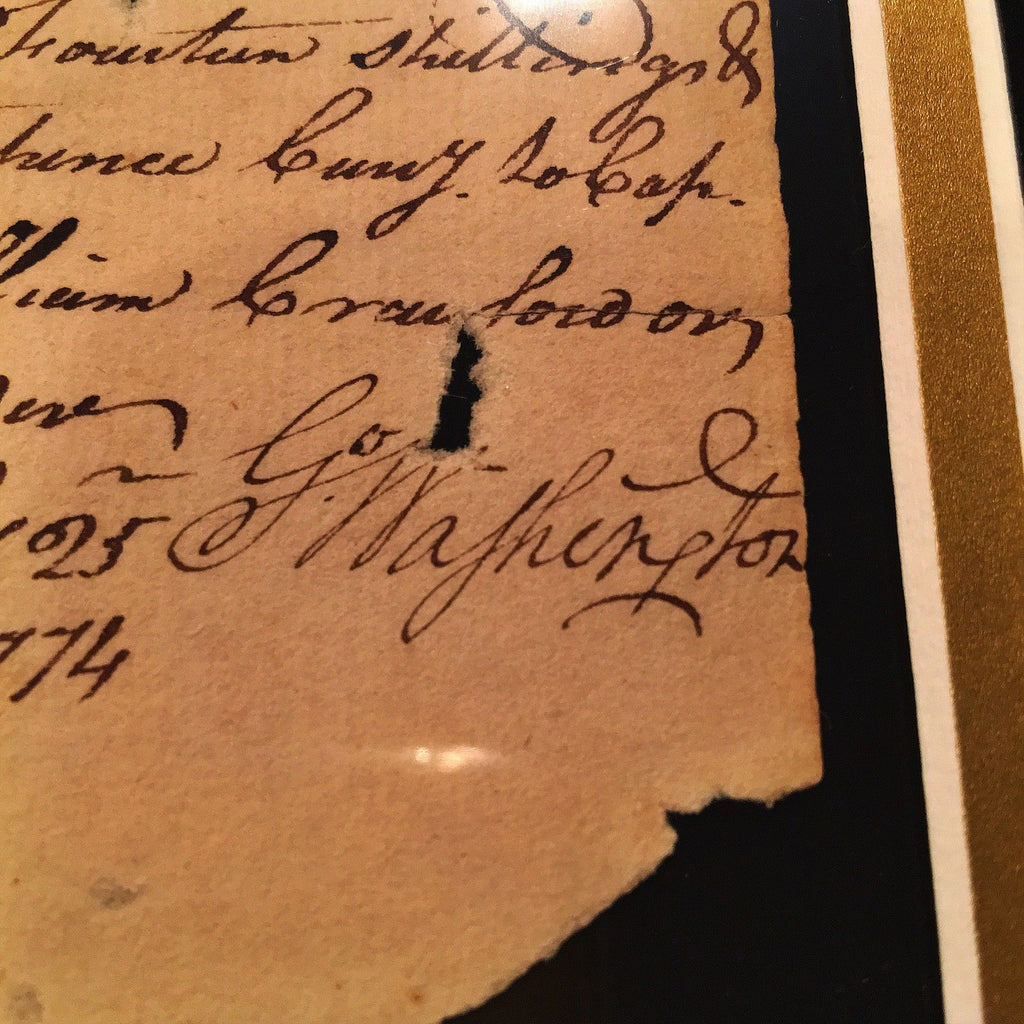 Fourteen shillings &
Curry. to Cap.
Crawford or
Go
25 G. Washington
774